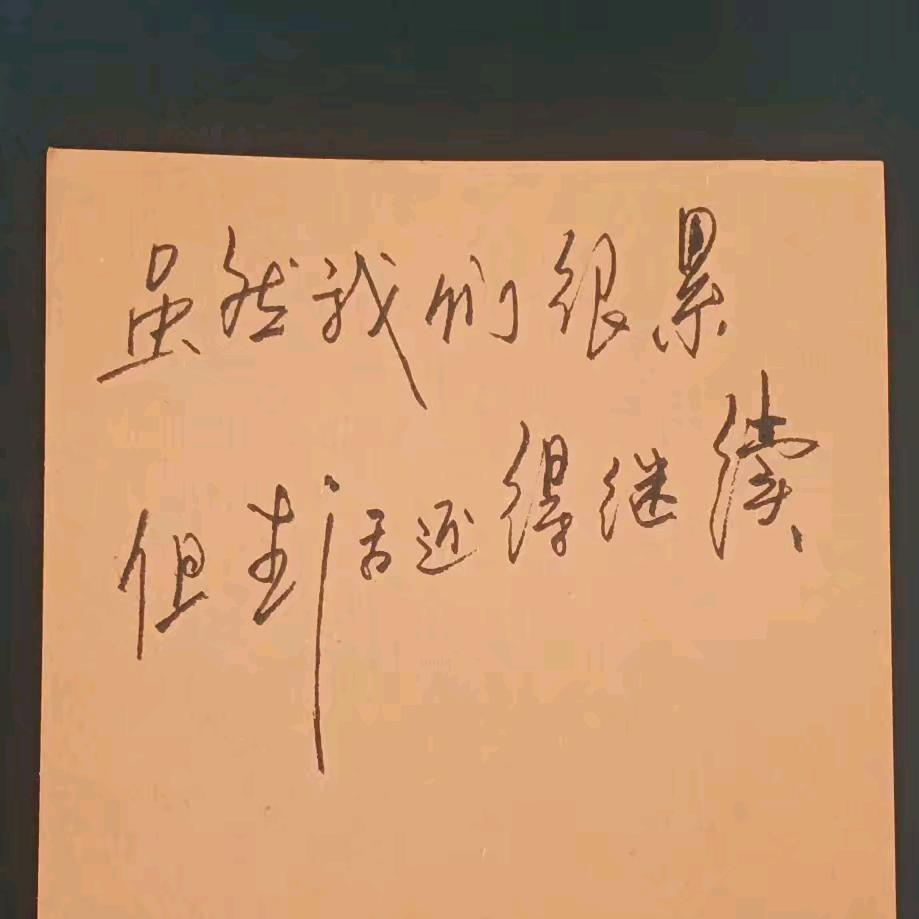 虽然我们很累
但生活还得继续